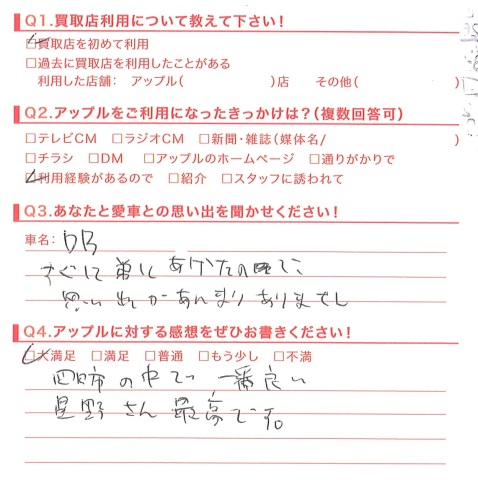 Q1.買取店利用について教えて下さい!
☑買取店を初めて利用
□過去に買取店を利用したことがある
利用した店舗: アップル( )店 その他( )
Q2.アップルをご利用になったきっかけは?(複数回答可)
□テレビCM □ラジオCM □新聞・雑誌(媒体名/ )
□チラシ □DM □アップルのホームページ □通りがかりで
☑利用経験があるので □紹介 □スタッフに誘われて
Q3.あなたと愛車との思い出を聞かせください!
車名: DB
すぐに弟にあげたので、
思い出があんまりありまでし
Q4.アップルに対する感想をぜひお書きください!
☑大満足 □満足 □普通 □もう少し □不満
四日市の中で一番良い
星野さん最高です。